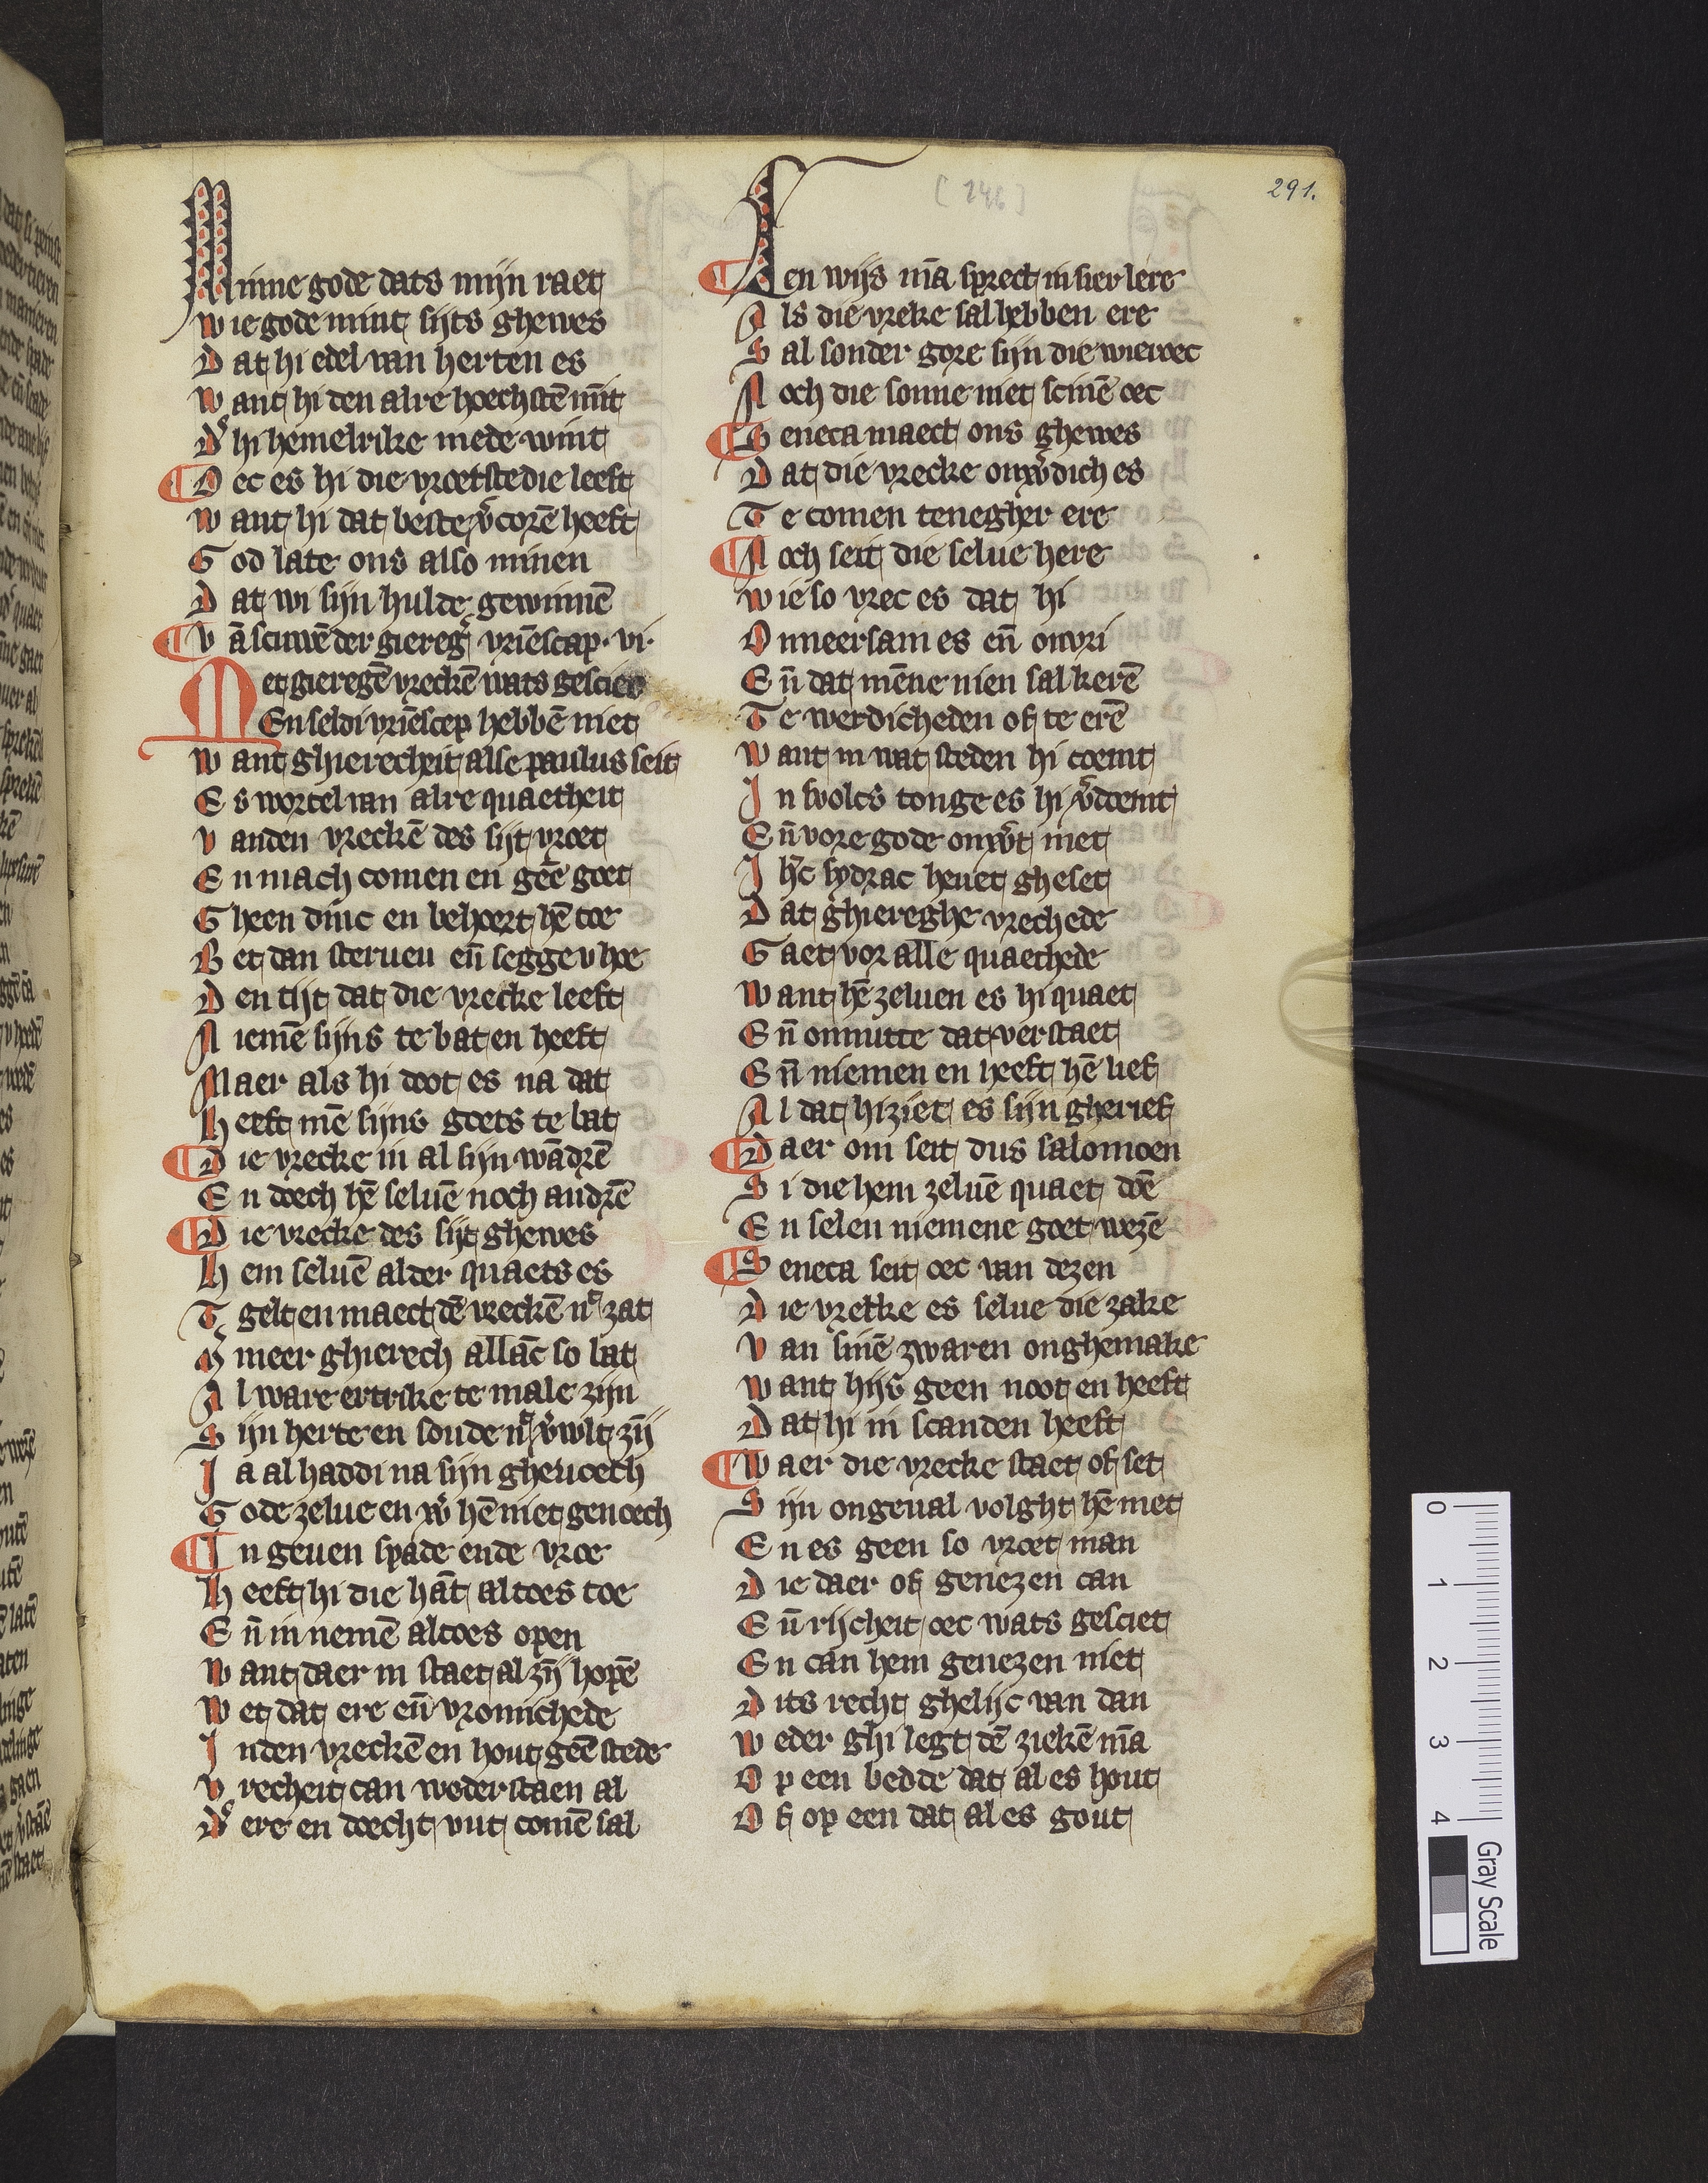 291.
[246]
Minne gode dats mijn raet
Wie gode mint sijts ghewes
Dat hi edel van herten es
Want hi den alre hoechstē mīt
D͛ hi hemelrike mede wint
¶ Oec es hi die vroetste die leeft
Want hi dat beste v͛corē heeft
God late ons also minen
Dat wi sijn hulde gewinnē
¶ Vā scuwē der giereg͛ vriēscap · vi ·
Met gieregē vreckē wats gesciet
En seldi vriēscep hebbē niet
Want ghierecheit alse paulus seit
Es wortel van alre quaetheit
Vanden vreckē des sijt vroet
En mach comen en geē goet
Gheen dinc en behoert hē toe
Bet dan steruen eñ segge v hoe
Den tijt dat die vrecke leeft
Niemē sijns te bat en heeft
Maer als hi doot es na dat
Heeft mē sijns goets te bat
¶ Die vrecke in al sijn wādrē
En doech hē seluē noch andrē
¶ Die vrecke des sijt ghewes
Hem seluē alder quaets es
Tgelt en maect dē vreckē nͣ zat
Mͣ meer ghierech allāc so bat
Al ware ertrike te male zijn
Sijn herte en soude nͣ v͛wlt zij̄
Ja al haddi na sijn gheuoech
Gode zelue en w͛ hē niet genoech
¶ In geuen spade ende vroe
Heeft hi die hāt altoes toe
Eñ in nemē altoes open
Want daer in staet al zij̄ hopē
Wet dat ere eñ vromichede
Inden vreckē en hout geē stede
Vrecheit can wederstaen al
D͛ ere en doecht vut comē sal
¶ Een wijs mā sprect in sier lere
Als die vreke sal hebben ere
Sal sonder gore sijn die wieroec
Noch die sonne niet scinē oec
¶ Seneca maect ons ghewes
Dat die vrecke onw͛dich es
Te comen tenegher ere
¶ Noch seit die selue here
Wie so vrec es dat hi
Onneersam es eñ onvri
Eñ dat mēne nien sal kerē
Te werdicheden of te erē
Want in wat steden hi coemt
In svolcs tonge es hi v͛doemt
Eñ vore gode onw͛t met
Ihc̄ sydrac heuet gheset
Dat ghiereghe vrechede
Gaet vor alle quaethede
Want hē zeluen es hi quaet
Eñ onnutte dat verstaet
Eñ niemen en heeft hē lief
Al dat hi ziet es sijn gherief
¶ Daer om seit dus salomoen
Si die hem zeluē quaet doē
En selen niemene goet wezē
¶ Seneca seit oec van dezen
Die vrecke es selue die zake
Van sinē zwaren onghemake
Want hijs geen noot en heeft
Dat hi in scanden heeft
¶ Waer die vrecke staet of set
Sijn ongeual volght hē met
En es geen so vroet man
Die daer of genezen can
Eñ rijcheit oec wats gesciet
En can hem genezen niet
Dits recht ghelijc van dan
Weder ghi legt dē ziekē mā
Op een bedde dat al es hout
Of op een dat al es gout
0
1
2
3
4
Gray Scale